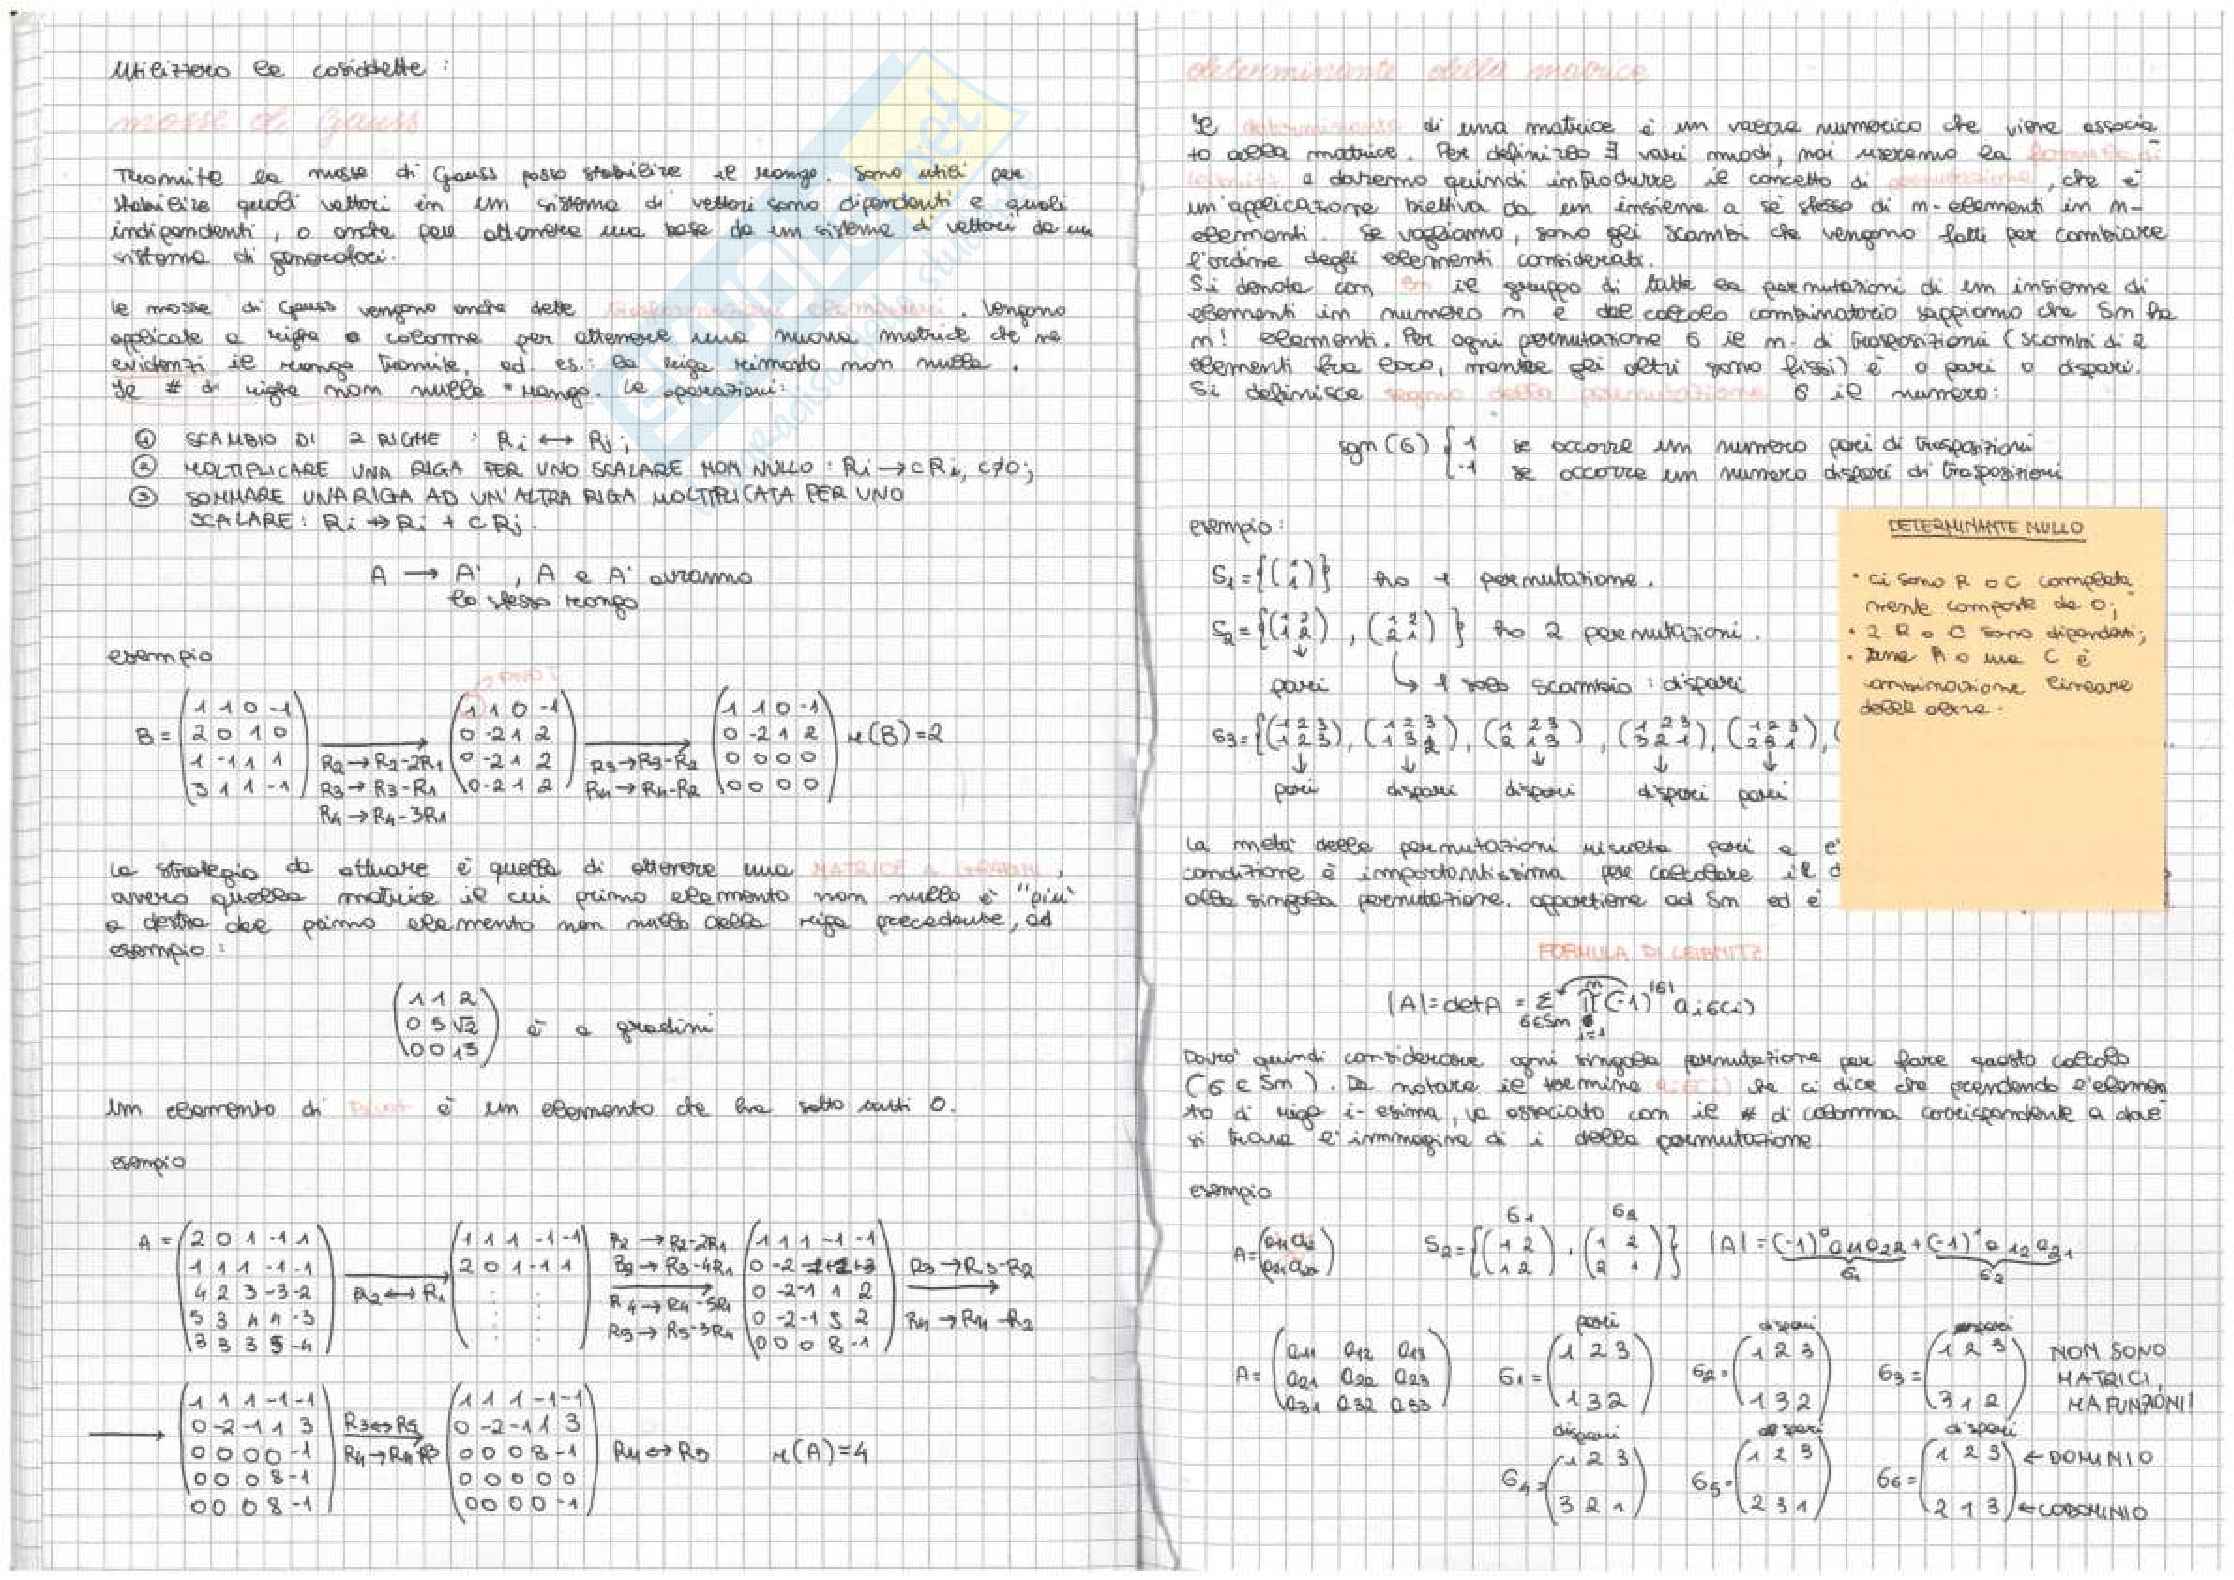 Utilizzerò le cosiddette :
mosse di Gauss
Tramite le mosse di Gauss posso stabilire il rango. Sono utili per
stabilire quali vettori in un sistema di vettori sono dipendenti e quali
indipendenti, o anche per ottenere una base da un sistema di vettori da un
sistema di generatori.
Le mosse di Gauss vengono anche dette trasformazioni elementari. Vengono
applicate a righe o colonne per ottenere una nuova matrice che ne
evidenzi il rango tramite, ad es.: la riga rimasta non nulla.
Il # di righe non nulle = rango. Le operazioni:
① SCAMBIO DI 2 RIGHE : Ri ↔ Rj;
② MOLTIPLICARE UNA RIGA PER UNO SCALARE NON NULLO : Ri → cRi, c≠0;
③ SOMMARE UNA RIGA AD UN'ALTRA RIGA MOLTIPLICATA PER UNO
SCALARE : Ri → Ri + cRj.
A → A' , A e A' avranno
lo stesso rango
esempio
B = (1 1 0 -1 / 2 0 1 0 / 1 -1 1 1 / 3 1 1 -1) R2→R2-2R1 R3→R3-R1 R4→R4-3R1 (1 1 0 -1 / 0 -2 1 2 / 0 -2 1 2 / 0 -2 1 2) R3→R3-R2 R4→R4-R2 (1 1 0 -1 / 0 -2 1 2 / 0 0 0 0 / 0 0 0 0) r(B)=2
La strategia da attuare è quella di ottenere una MATRICE A GRADINI,
ovvero quella matrice il cui primo elemento non nullo è "più"
a destra del primo elemento non nullo della riga precedente, ad
esempio :
(1 1 2 / 0 5 √2 / 0 0 13) è a gradini
Un elemento di Pivot è un elemento che ha sotto tutti 0.
esempio
A = (2 0 1 -1 1 / 1 1 1 -1 -1 / 4 2 3 -3 -2 / 5 3 4 4 -3 / 3 3 3 5 -4) R2↔R1 (1 1 1 -1 -1 / 2 0 1 -1 1) R2→R2-2R1 R3→R3-4R1 R4→R4-5R1 R5→R5-3R1 (1 1 1 -1 -1 / 0 -2 -1 1 3 / 0 -2 -1 1 2 / 0 -2 -1 9 2 / 0 0 0 8 -1) R3→R3-R2 R4→R4-R2
→ (1 1 1 -1 -1 / 0 -2 -1 1 3 / 0 0 0 0 -1 / 0 0 0 8 -1 / 0 0 0 8 -1) R3↔R5 R4→R4-R3 (1 1 1 -1 -1 / 0 -2 -1 1 3 / 0 0 0 8 -1 / 0 0 0 0 0 / 0 0 0 0 -1) R4↔R5 r(A)=4
determinante della matrice
Il determinante di una matrice è un valore numerico che viene associa
to alla matrice. Per definirlo ∃ vari modi, noi useremo la formula di
Leibnitz e dovremo quindi introdurre il concetto di permutazione, che è
un'applicazione biettiva da un insieme a sé stesso di n-elementi in n-
elementi. Se vogliamo, sono gli scambi che vengono fatti per cambiare
l'ordine degli elementi considerati.
Si denota con Sn il gruppo di tutte le permutazioni di un insieme di
elementi in numero n e dal calcolo combinatorio sappiamo che Sn ha
n! elementi. Per ogni permutazione σ il n. di trasposizioni (scambi di 2
elementi fra loro, mentre gli altri sono fissi) è o pari o dispari.
Si definisce segno della permutazione σ il numero:
sgn(σ) { 1 se occorre un numero pari di trasposizioni
-1 se occorre un numero dispari di trasposizioni
esempio :
S1 = {(1 / 1)} ho 1 permutazione.
S2 = {(1 2 / 1 2), (1 2 / 2 1)} ho 2 permutazioni.
pari ↳ 1 solo scambio : dispari
S3 = {(1 2 3 / 1 2 3), (1 2 3 / 1 3 2), (1 2 3 / 2 1 3), (1 2 3 / 3 2 1), (1 2 3 / 2 3 1), (
pari dispari dispari dispari pari
DETERMINANTE NULLO
• Ci sono R o C completa
mente composte da 0;
• 2 R o C sono dipendenti;
• Una R o una C è
combinazione lineare
delle altre.
La metà delle permutazioni risulta pari e
condizione è importantissima per calcolare il
alla singola permutazione. appartiene ad Sn ed è
FORMULA DI LEIBNITZ
|A| = detA = Σ σ∈Sn Π n i=1 (-1)^|σ| a iσ(i)
Dovrò quindi considerare ogni singola permutazione per fare questo calcolo
(σ ∈ Sn). Da notare il termine aiσ(i) che ci dice che prendendo l'elemen
to di riga i-esima, va associato con il # di colonna corrispondente a dove
si trova l'immagine di i della permutazione.
esempio
A = (a11 a12 / a21 a22) S2 = {σ1 (1 2 / 1 2), σ2 (1 2 / 2 1)} |A| = (-1)^0 a11 a22 + (-1)^1 a12 a21
σ1 σ2
A = (a11 a12 a13 / a21 a22 a23 / a31 a32 a33) σ1 = pari (1 2 3 / 1 3 2) σ2 = dispari (1 2 3 / 1 3 2) σ3 = (1 2 3 / 3 1 2) NON SONO
MATRICI,
MA FUNZIONI!
σ4 = dispari (1 2 3 / 3 2 1) σ5 = (1 2 3 / 2 3 1) σ6 = dispari (1 2 3 / 2 1 3) ← DOMINIO
← CODOMINIO